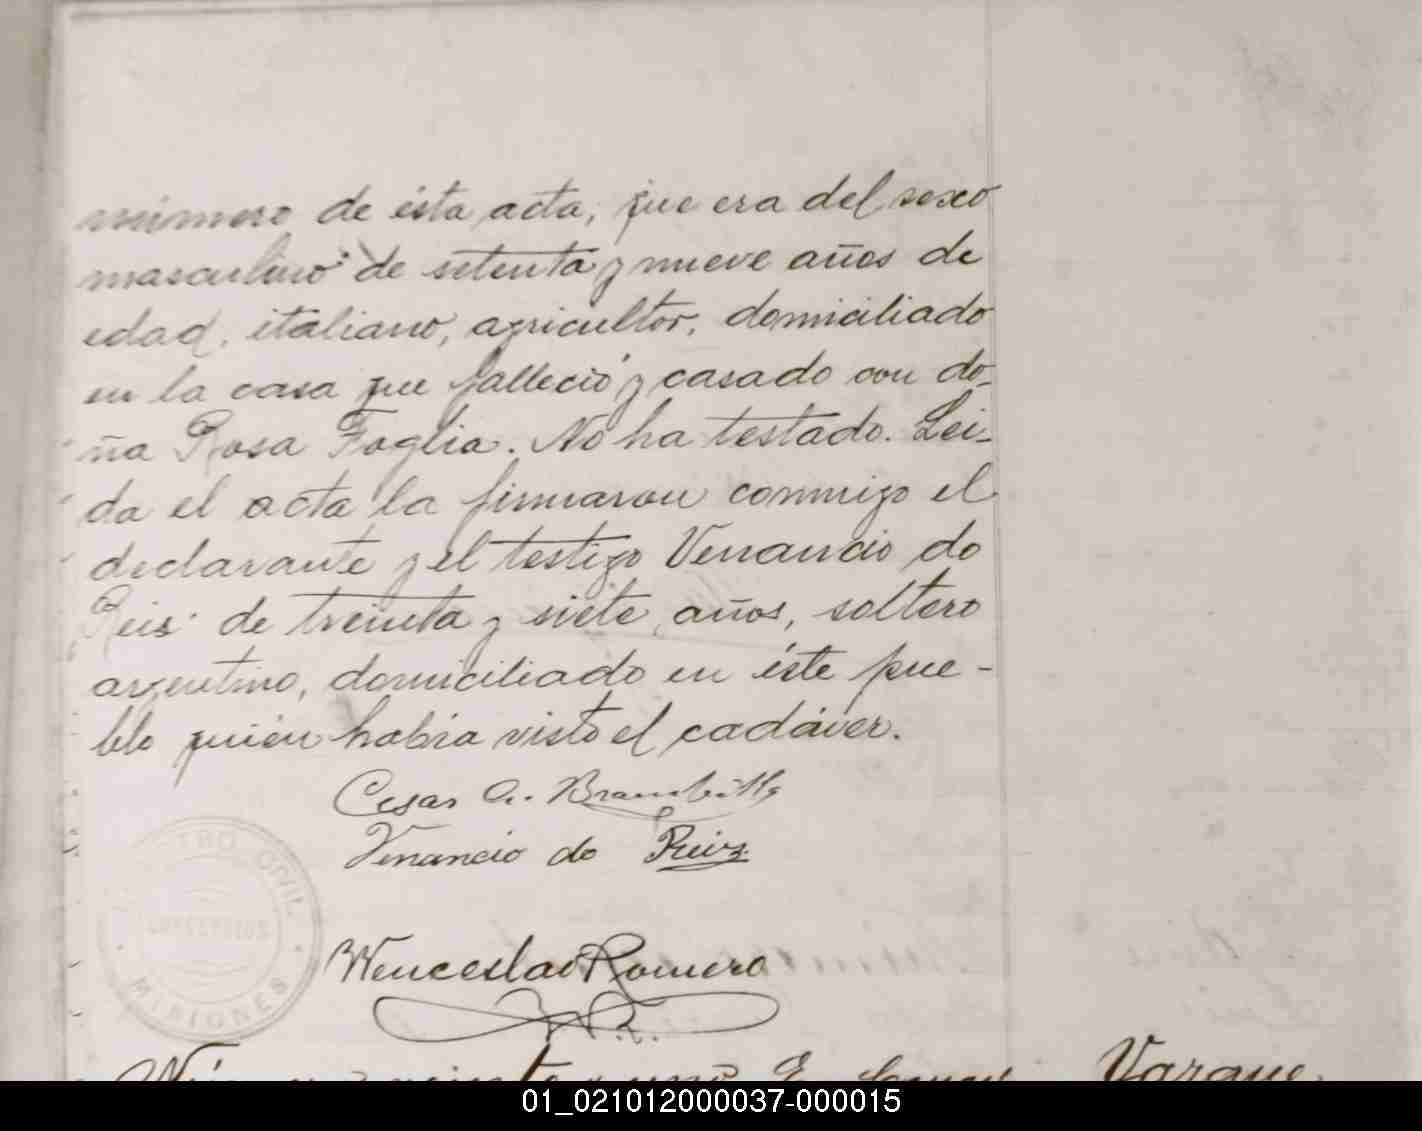 número de ésta acta, que era del sexo
masculino de setenta y nueve años de
edad, italiano, agricultor, domiciliado
en la casa que falleció y casado con do-
ña Rosa Foglia. No ha testado. Lei-
da el acta la firmaron conmigo el
declarante y el testigo Venancio do
Reis de treinta y siete años, soltero
argentino, domiciliado en éste pue-
blo quién habia visto el cadáver.
Cesar A. Brambilla
Venancio do Reis
TRO CIVIL
MISIONES
Wenceslao Romero
W.R.
veinte y uno
01_021012000037-000015